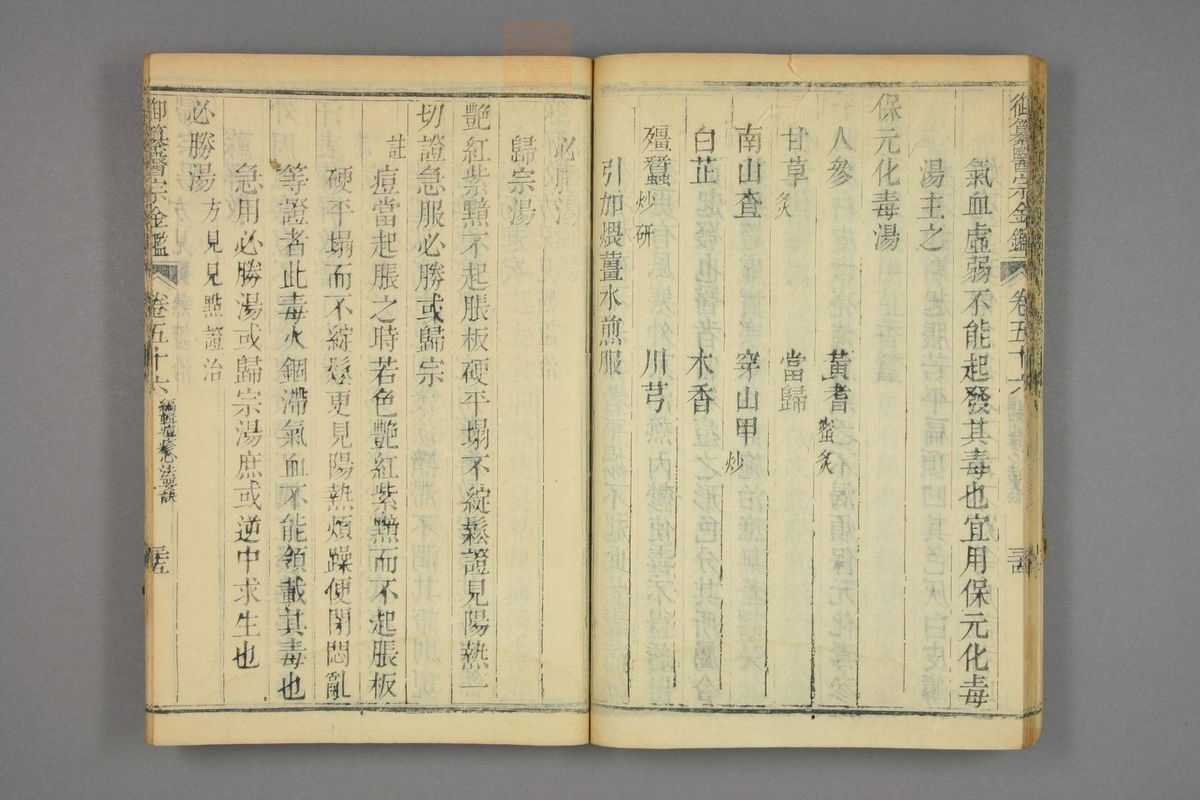 御纂醫宗金鑑 卷五十六
氣血虛弱不能起發其毒也宜用保元化毒
湯主之
保元化毒湯
人參 黃耆蜜炙
甘草炙 當歸
南山查 穿山甲炒
白芷 木香
殭蠶炒研 川芎
引加煨薑水煎服
必勝湯
歸宗湯
艷紅紫黯不起脹板硬平塌不綻鬆證見陽熱一
切證急服必勝或歸宗
註痘當起脹之時若色艷紅紫黯而不起脹板
硬平塌而不綻鬆更見陽熱煩躁便閉悶亂
等證者此毒火錮滯氣血不能領載其毒也
急用必勝湯或歸宗湯庶或逆中求生也
必勝湯方見見點證治
御纂醫宗金鑑 卷五十六 編輯痘疹心法要訣 三五